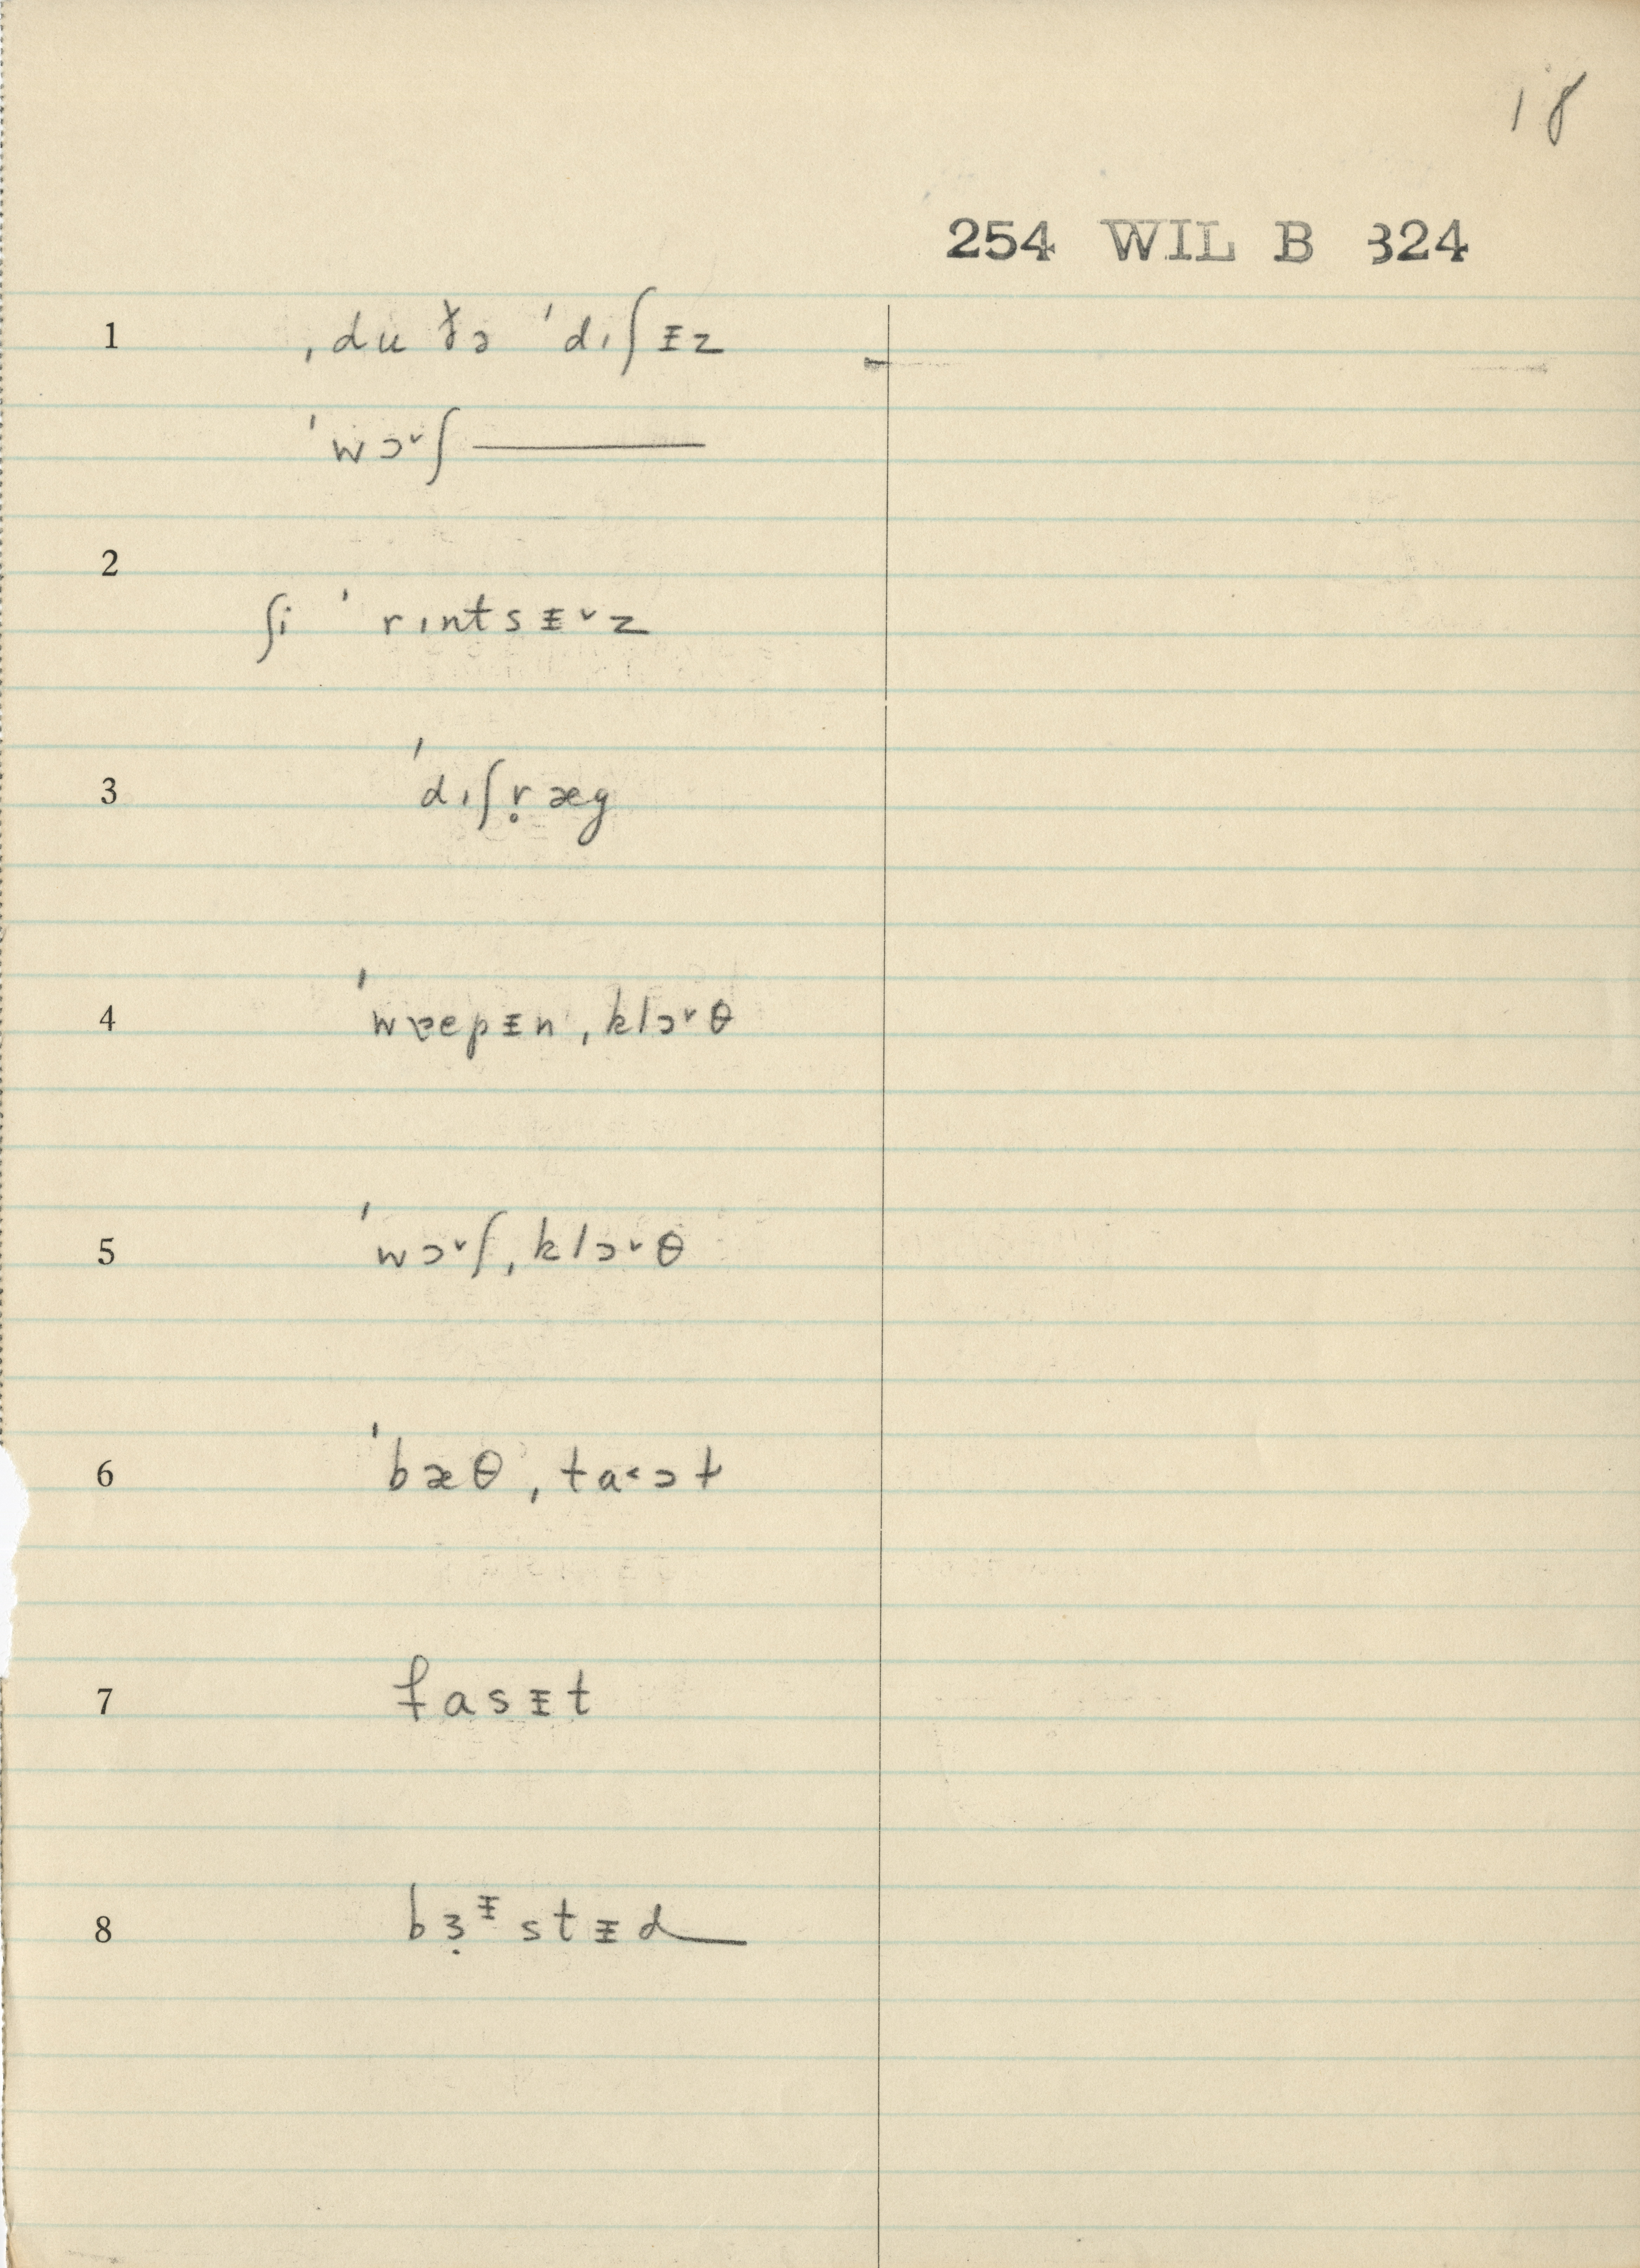 18
254 WIL B 324
1 ˌdu ðə ˈdɪʃᵻz
ˈwɔ˅ʃ ———
2
ʃi ˈrɪntsᵻ˅z
3 ˈdɪʃr̥æg
4 ˈwræpᵻn ˌklɔ˅θ
5 ˈwɔ˅ʃˌklɔ˅θ
6 ˈbæθˌta˂ɔt
7 fasᵻt
8 bɜ̣ᵻstᵻd